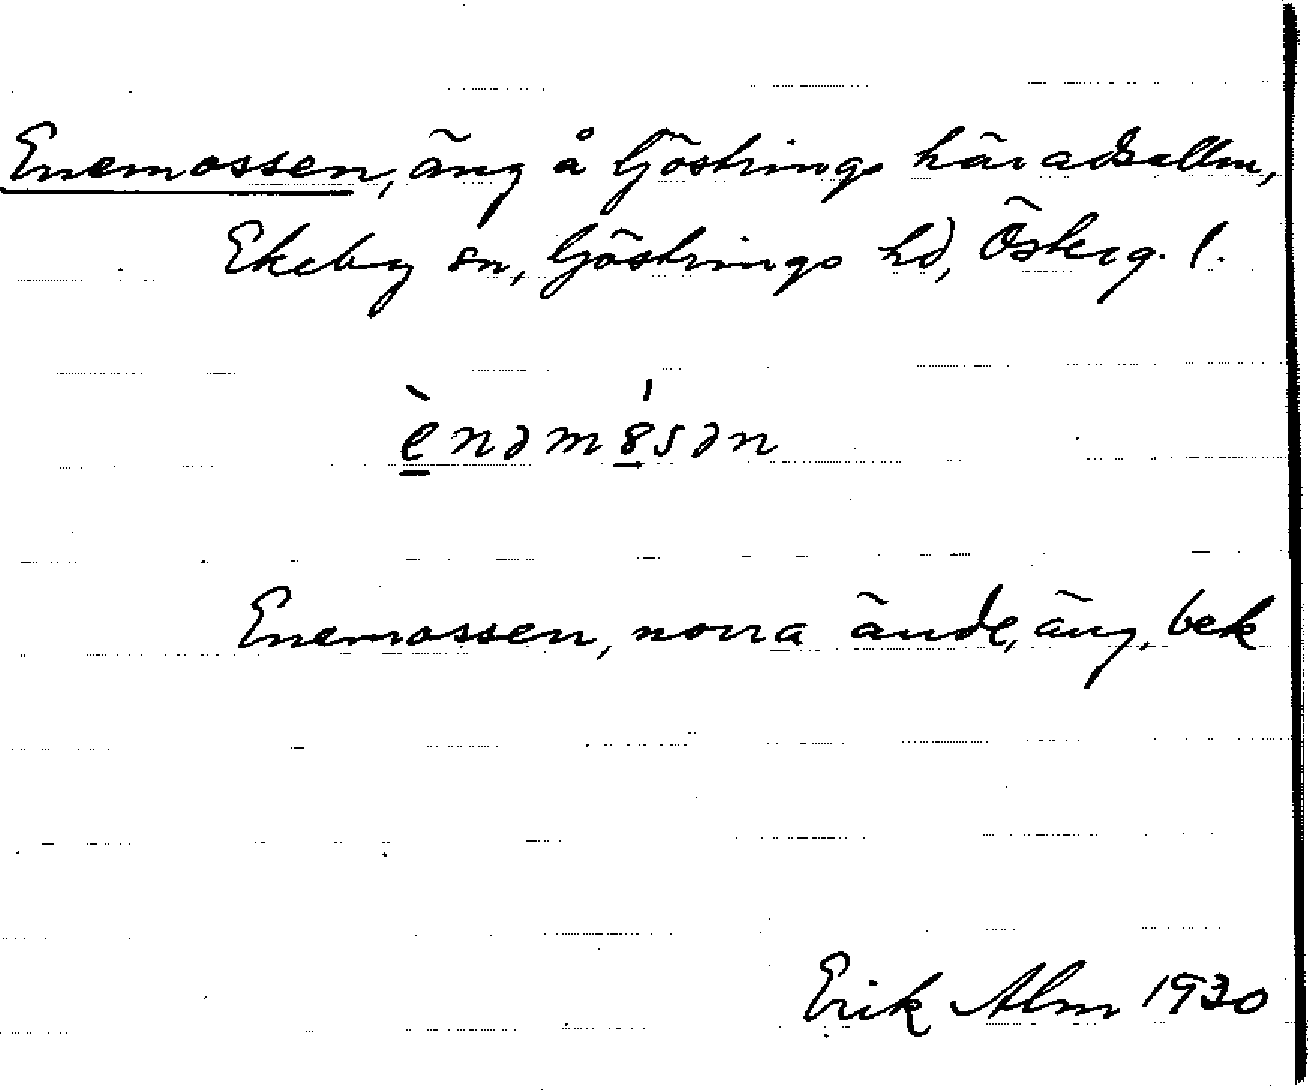 Enemossen, äng å Göstrings häradsallm,
Ekeby sn, Göstrings hd, Österg. l.
ènəmòsən
Enemossen, norra ände, äng, bek
Erik Alm 1930